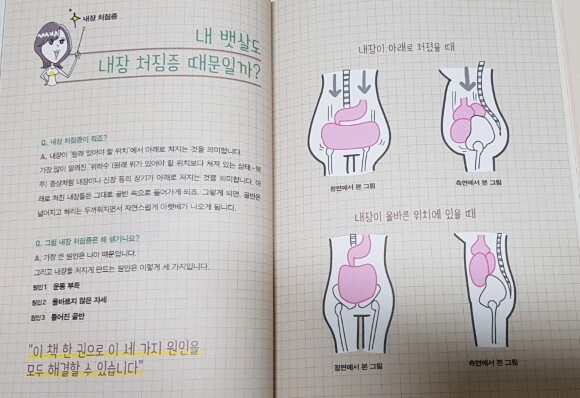 내장 처짐증
내 뱃살도
내장 처짐증 때문일까?
Q. 내장 처짐증이 뭐죠?
A. 내장이 '원래 있어야 할 위치'에서 아래로 처지는 것을 의미합니다.
가장 많이 알려진 '위하수'(원래 위가 있어야 할 위치보다 처져 있는 상태-역
주) 증상처럼 내장이나 신장 등의 장기가 아래로 처지는 것을 의미합니다. 아
래로 처진 내장들은 그대로 골반 속으로 들어가게 되죠. 그렇게 되면, 골반은
넓어지고 허리는 두꺼워지면서 자연스럽게 아랫배가 나오게 됩니다.
Q. 그럼 내장 처짐증은 왜 생기나요?
A. 가장 큰 원인은 나이 때문입니다.
그리고 내장을 처지게 만드는 원인은 이렇게 세 가지입니다.
원인1 운동 부족
원인2 올바르지 않은 자세
원인3 틀어진 골반
"이 책 한 권으로 이 세 가지 원인을
모두 해결할 수 있습니다"
내장이 아래로 처졌을 때
정면에서 본 그림
측면에서 본 그림
내장이 올바른 위치에 있을 때
정면에서 본 그림
측면에서 본 그림